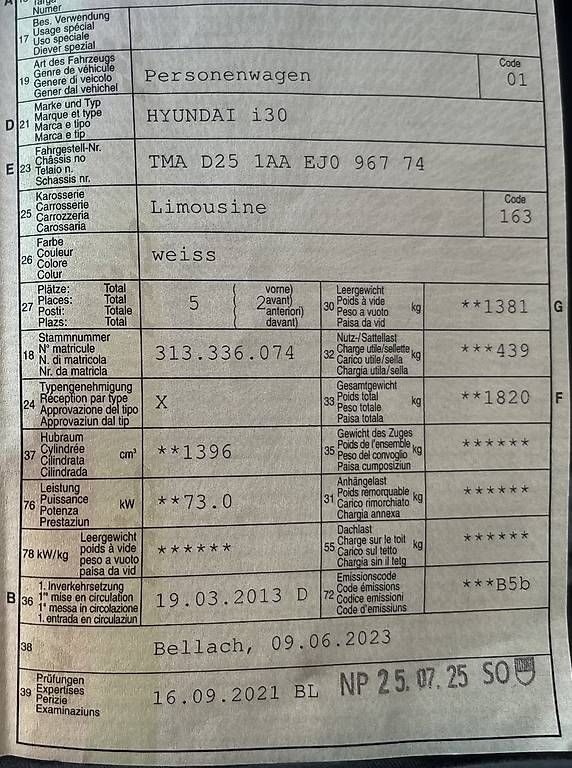 Numer
17 Bes. Verwendung
Usage spécial
Uso speciale
Diever spezial
19 Art des Fahrzeugs
Genre de véhicule
Genere di veicolo
Gener dal vehichel
Personenwagen
Code
01
D 21 Marke und Typ
Marque et type
Marca e tipo
Marca e tip
HYUNDAI i30
E 23 Fahrgestell-Nr.
Châssis no
Telaio n.
Schassis nr.
TMA D25 1AA EJ0 967 74
25 Karosserie
Carrosserie
Carrozzeria
Carossaria
Limousine
Code
163
26 Farbe
Couleur
Colore
Colur
weiss
27 Plätze: Total
Places: Total
Posti: Totale
Plazs: Total
5
( vorne)
( 2 avant)
( anteriori)
( davant)
30 Leergewicht
Poids à vide kg
Peso a vuoto
Paisa da vid
**1381 G
18 Stammnummer
N° matricule
N. di matricola
Nr. da matricla
313.336.074
32 Nutz-/Sattellast
Charge utile/sellette kg
Carico utile/sella
Chargia utila/sella
***439
24 Typengenehmigung
Réception par type
Approvazione del tipo
Approvaziun dal tip
X
33 Gesamtgewicht
Poids total kg
Peso totale
Paisa totala
**1820 F
37 Hubraum
Cylindrée cm³
Cilindrata
Cilindrada
**1396
35 Gewicht des Zuges
Poids de l'ensemble kg
Peso del convoglio
Paisa cumposiziun
******
76 Leistung
Puissance kW
Potenza
Prestaziun
**73.0
31 Anhängelast
Poids remorquable kg
Carico rimorchiato
Chargia annexa
******
78 kW/kg Leergewicht
poids à vide
peso a vuoto
paisa da vid
******
55 Dachlast
Charge sur le toit kg
Carico sul tetto
Chargia sin il tetg
******
B 36 1. Inverkehrsetzung
1re mise en circulation
1a messa in circolazione
1. entrada en circulaziun
19.03.2013 D
72 Emissionscode
Code émissions
Codice emissioni
Code d'emissiuns
***B5b
38
Bellach, 09.06.2023
39 Prüfungen
Expertises
Perizie
Examinaziuns
16.09.2021 BL
NP 25.07.25 SO